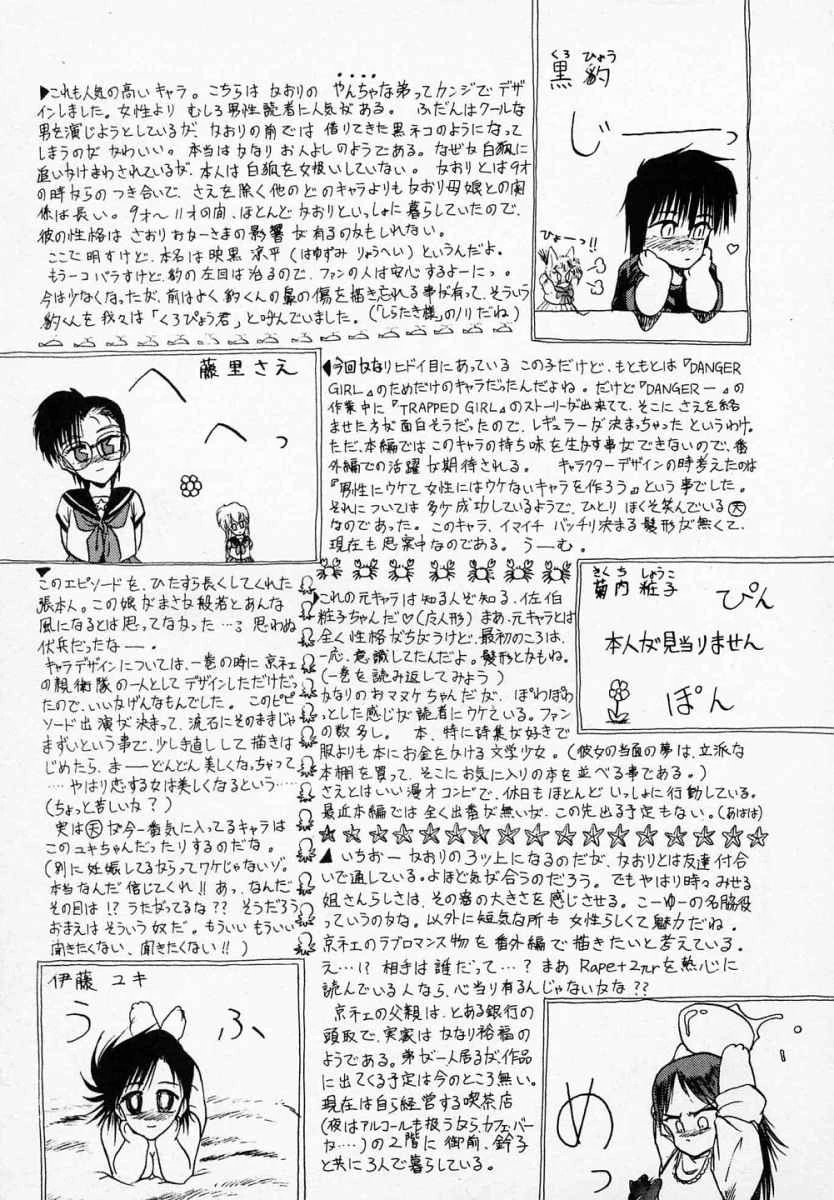 黒豹
くろ ひょう
じーーっ
ひょーっ!!
▶これも人気の高いキャラ。こちらは なおりの やんちゃな弟ってカンジでデザ
インしました。女性より むしろ男性読者に人気がある。 ふだんはクールな
男を演じようとしているが、なおりの前では 借りてきた黒ネコのようになって
しまうのが かわいい。本当は かなり お人よしのようである。なぜか白狐に
追いかけまわされているが、本人は白狐を女扱いしていない。 なおりとは9才
の時からのつき合いで、さえを除く他のどのキャラよりも なおり母娘との関
係は長い。9才〜11才の間、ほとんどなおりといっしょに暮らしていたので、
彼の性格は さおりおかーさまの影響が有るのかもしれない。
ここで明すけど、本名は映黒 涼平(はゆずみ りょうへい)というんだよ。
もう一コバラすけど、豹の左目は治るので、ファンの人は安心するよーにっ。
今は少なくなったが、前はよく豹くんの鼻の傷を描き忘れる事が有って、そういう
豹くんを我々は「くろぴょう君」と呼んでいました。(「しらたき様」のノリだね)
藤里さえ
へへっ
◀今回かなりヒドイ目にあっている この子だけど、もともとは『DANGER
GIRL』のためだけのキャラだったんだよね。だけど『DANGERー』の
作業中に『TRAPPED GIRL』のストーリーが出来てて、そこに さえを絡
ませた方が面白そうだったので、レギュラーが決まっちゃったというわけ。
ただ、本編ではこのキャラの持ち味を生かす事ができないので、番
外編での活躍が期待される。 キャラクターデザインの時考えたのは
『男性にウケて女性にはウケないキャラを作ろう』という事でした。
それについては多少成功しているようで、ひとりほくそ笑んでいる㊝
なのであった。このキャラ、イマイチ バッチリ決まる髪形が無くて、
現在も思案中なのである。うーむ。
きくち しょうこ
菊内 粧子
ぴん
本人が見当りません
ぽん
▶これの元キャラは知る人ぞ知る、佐伯
粧子ちゃんだ♡(広人形)まあ、元キャラとは
全く性格がちがうけど、最初のころは、
一応、意識してたんだよ。髪形とかもね。
(一巻を読み返してみよう)
かなりのおマヌケちゃんだが、ぽわぽわ
っとした感じが読者にウケている。ファン
の数多し。 本、特に詩集が好きで
服よりも本にお金をかける文学少女。(彼女の当面の夢は、立派な
本棚を買って、そこにお気に入りの本を並べる事である。)
さえとはいい漫才コンビで、休日もほとんどいっしょに行動している。
最近本編では全く出番が無いが、この先出る予定もない。(あはは)
▼
このエピソードを、ひたすら長くしてくれた
張本人。この娘がまさか般若とあんな
風になるとは思ってなかった…ろ思わぬ
伏兵だったなー。
キャラデザインについては、一巻の時に京ネエ
の親衛隊の一人としてデザインしただけだっ
たので、いいかげんなもんでした。このピピ
ソード出演が決まって、流石にそのままじゃ
まずいという事で、少しき直しして描きは
じめたら、まーどんどん美しくなっちゃって
……やはり恋する女は美しくなるという……
(ちょっと苦しいな?)
実は㊝が今一番気に入ってるキャラは
このユキちゃんだったりするのだな。
(別に妊娠してるからってワケじゃないゾ。
本当なんだ信じてくれ!!あっ、なんだ
その目は!?うたがってるな??そうだろう
おまえはそういう奴だ。もういい もういい
聞きたくない、聞きたくない!!)
伊藤 ユキ
うふ
▲いちおー なおりの3ツ上になるのだが、なおりとは友達付合
いで通している。よほど気が合うのだろう。でもやはり時々みせる
姐さんらしさは、その器の大きさを感じさせる。こーゆーの名脇役
っていうのかな。以外に短気な所も 女性らしくて魅力だね。
京ネエのラブロマンス物を番外編で描きたいと考えている。
え…!?相手は誰だって…?まあ Rape+2πrを熱心に
読んでいる人なら、心当り有るんじゃないかな??
京ネエの父親は、とある銀行の
頭取で、実家はかなり裕福の
ようである。弟が一人居るが作品
に出てくる予定は今のところ無い。
現在は自ら経営する喫茶店
(夜はアルコールも扱うから、カフェバー
か……)の2階に 御前、鈴子
と共に3人で暮らしている。
めっ